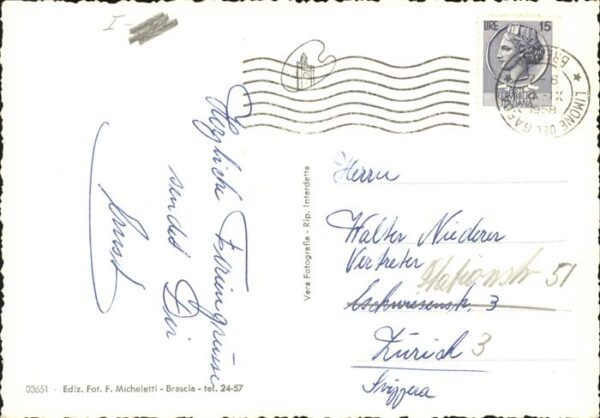 I-
LIRE 15
REPUBBLICA
ITALIANA
LIMONE DEL GARDA
X
1958
Herzliche Feriengrüsse
sendet Dir
Ernst
Vera Fotografia - Rip. Interdetta
Herrn
Walter Niederer
Vertreter
Stationsstr 51
3
Zürich 3
Svizzera
03651 - Ediz. Fot. F. Micheletti - Brescia - tel. 24-57